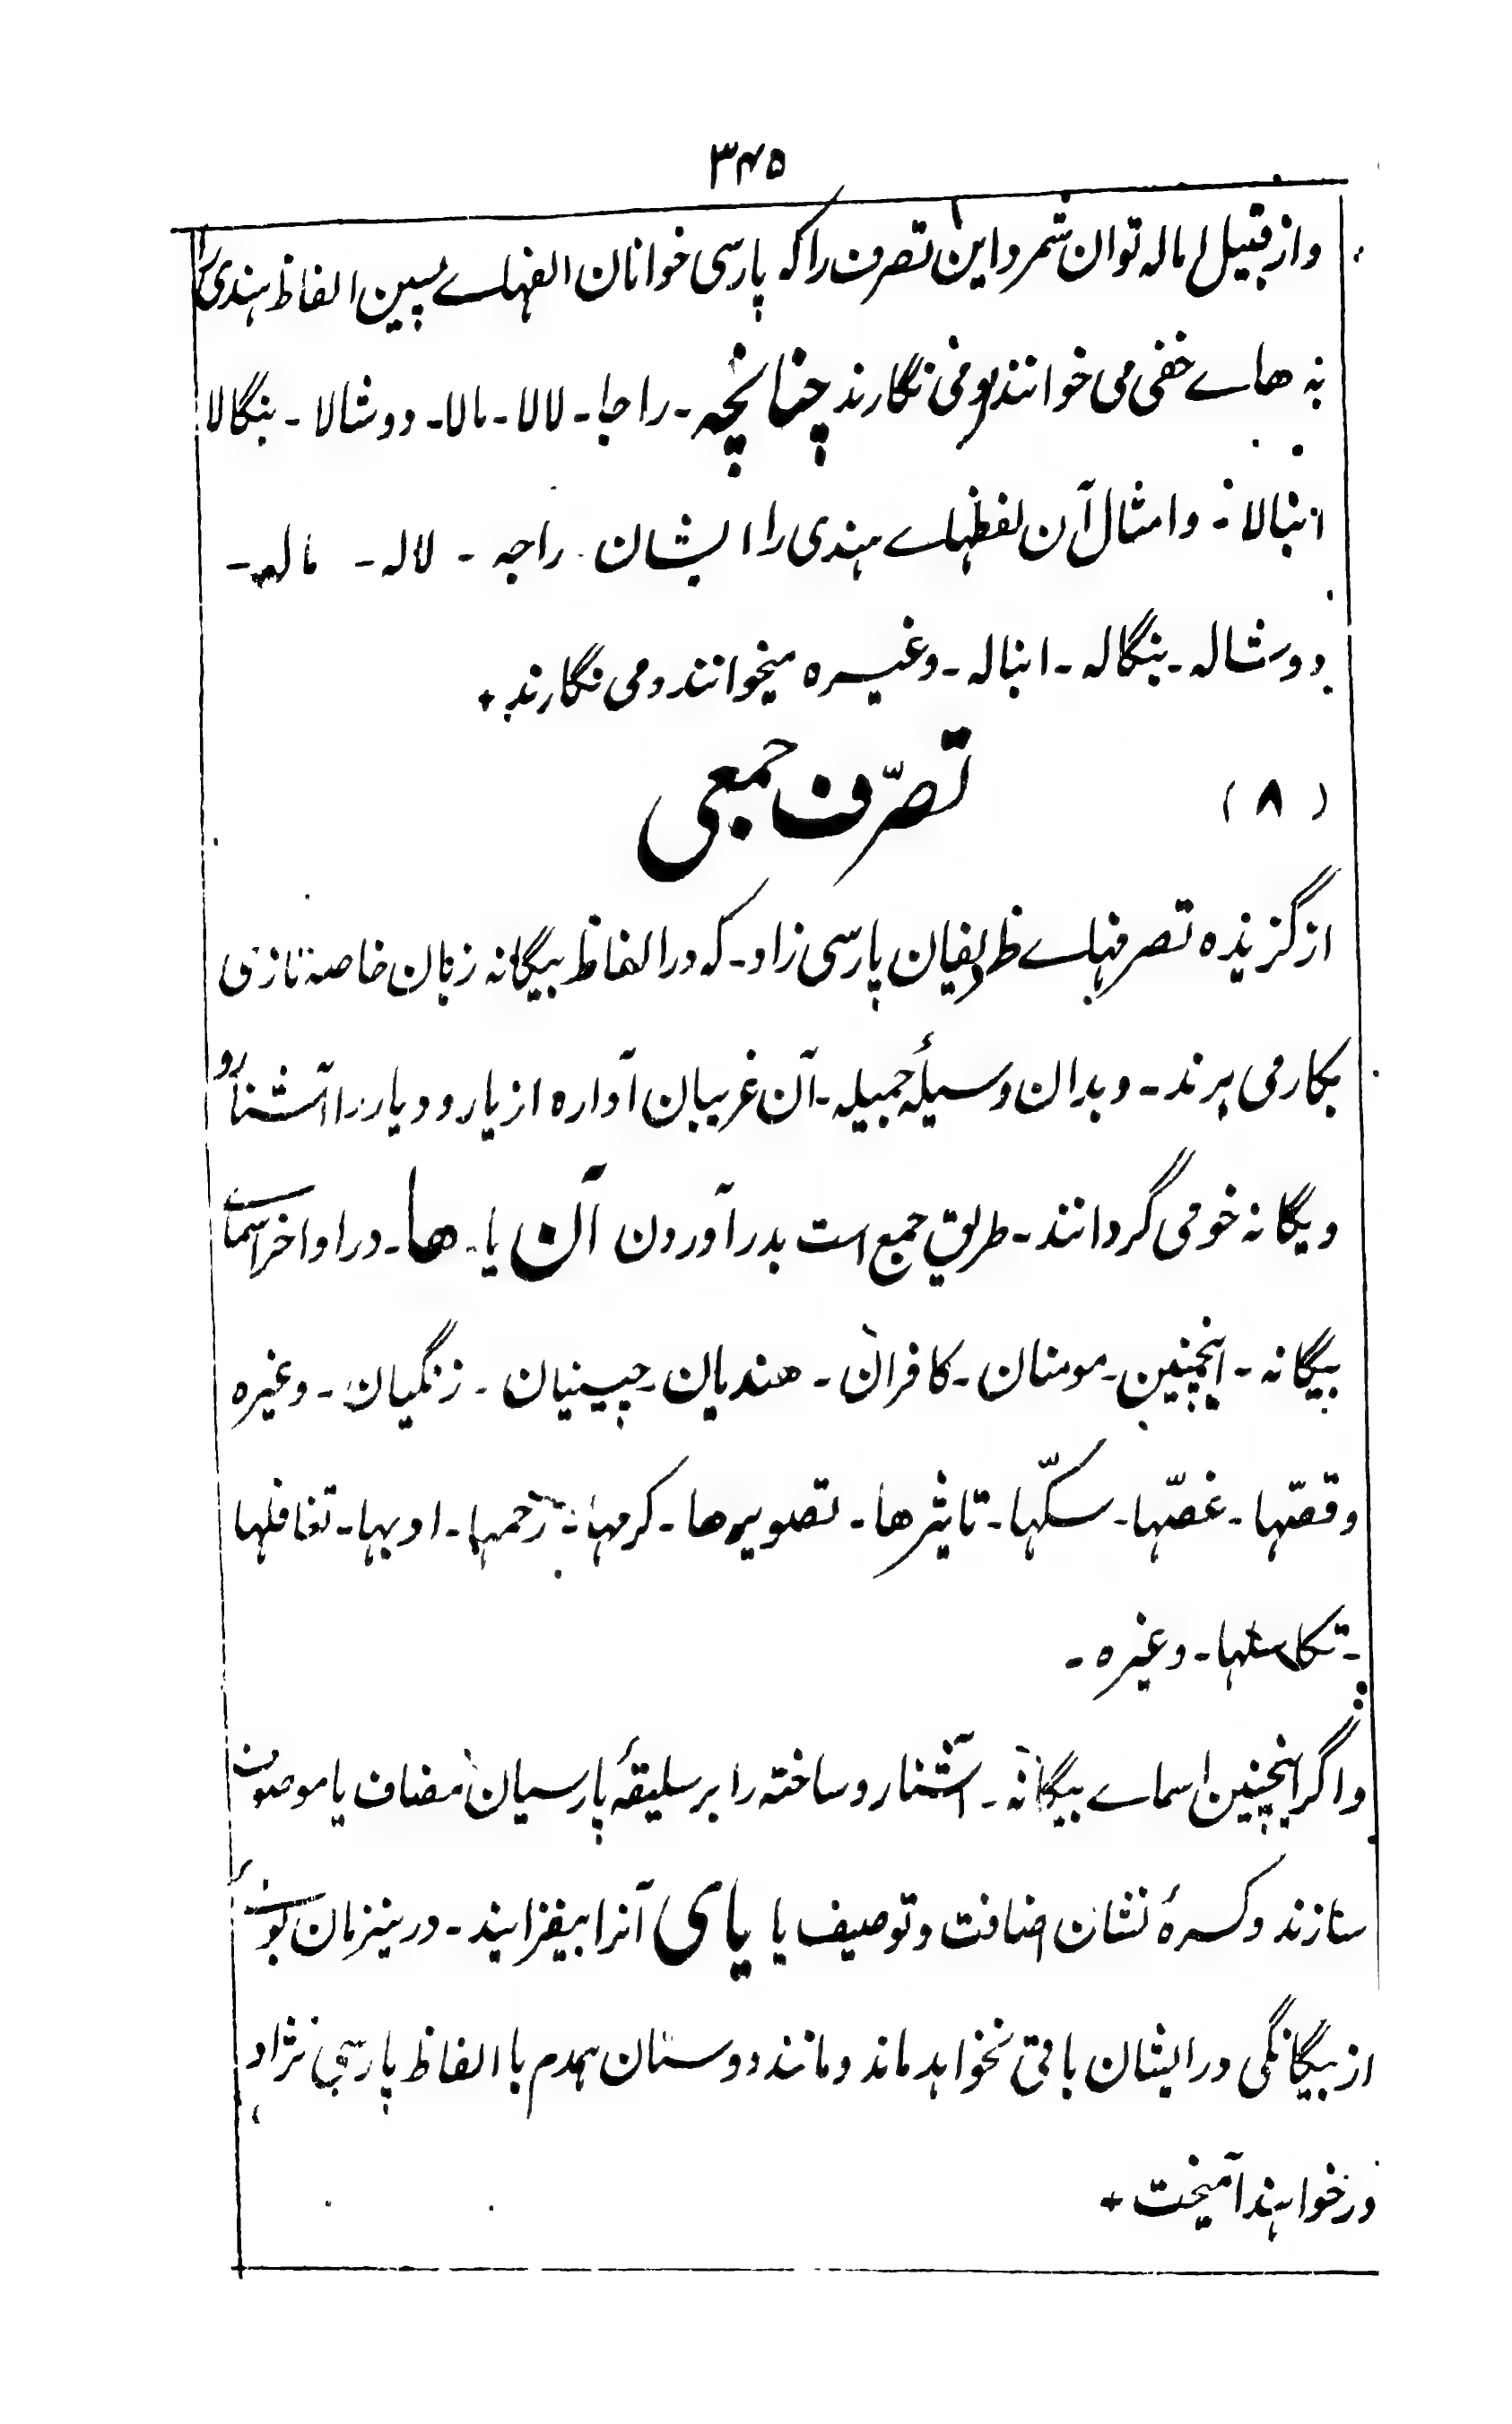 ۳۴۵
و از قبیل اماله توان شمرد این تصرف را که پارسی خوانان الفهاے پسین الفاظ هندی را
به هاے خفی می خوانند و می نگارند چنانچه - راجا - لالا - مالا - دوشالا - بنگالا
انبالا - و امثال آن لفظهاے هندی را ایشان راجه - لاله - ماله -
دوشاله - بنگاله - انباله - وغیره میخوانند و می نگارند +
(۸) تصرّف جمعی
از گزیده تصرفهاے ظریفان پارسی زاد - که در الفاظ بیگانه زبان خاصه تازی
بکار می برند - و بدان وسیلهٔ جمیله - آن غریبان آواره از یار و دیار را آشنا رو
و یگانه خو می گردانند - طریق جمع است بدر آوردن آن یا - ها - در اواخر اسماے
بیگانه - اینچنین - مومنان - کافران - هندیان - چینیان - زنگیان - وغیره
و قصّها - غصّها - سکّها - تاثیرها - تصویرها - کرمها - رحمها - ادبها - تغافلها
- تکاسلها - وغیره -
و اگر اینچنین اسماے بیگانه - آشنا رو ساخته را بر سلیقهٔ پارسیان مضاف یا موصوف
سازند و کسرهٔ نشان اضافت و توصیف یا یای آنرا بیفزایند - درینزمان بوئے
از بیگانگی در ایشان باقی نخواهد ماند و مانند دوستان همدم با الفاظ پارسی نژاد
در خواهند آمیخت +